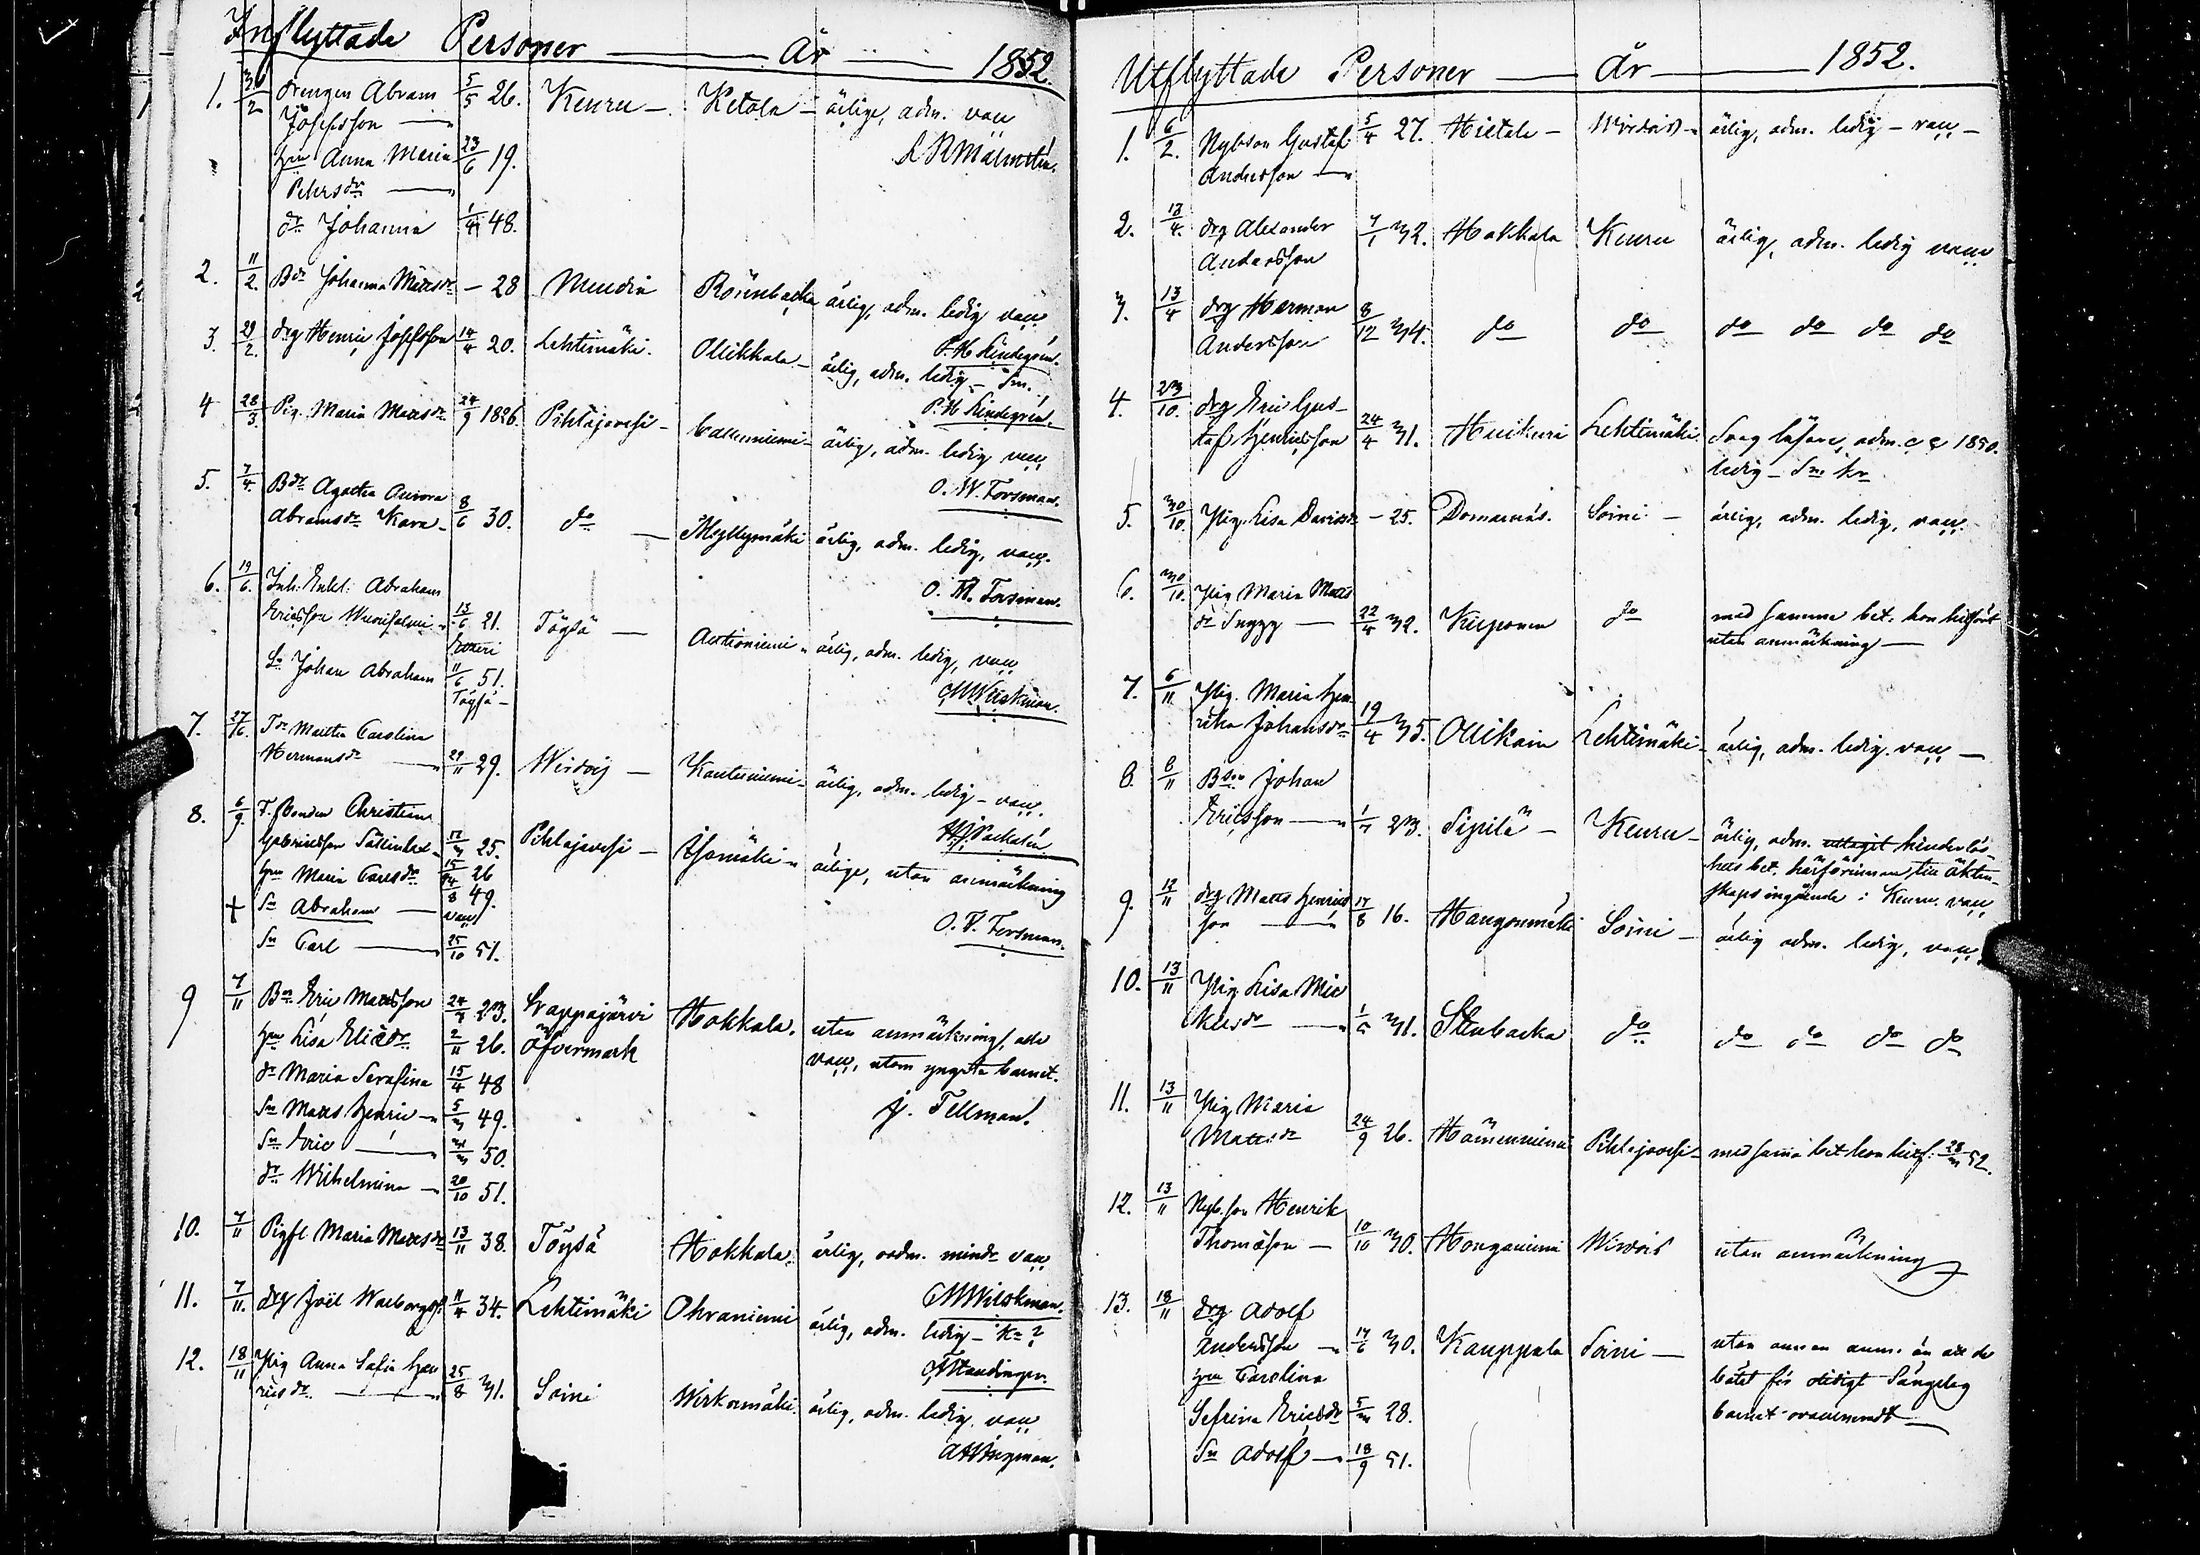 Inflyttade Personer — År — 1852.
1. 30/2 drengen Abram 5/5 26. Keuru — Ketola — ärlige, adm. vacc
Josefsson —
hu Anna Maria 23/6 19. Malmstén.
Petersdr —
dr Johanna 1/4 48.
2. 11/2. Bdr Johanna Mattsdr — 28 Rönnbacka ärlig, adm. ledig vacc
P. H. Lindegrén.
3. 29/2. drg Henric Josefsson 14/4 20. Lehtimäki. Ollikkala — ärlig, adm. ledig — Sm.
P. H. Lindegrén.
4 28/3. Pig. Maria Mattsdr 24/9 1826. Pihlajavesi — ärlig, adm. ledig vacc
O. W. Forsman.
5. 7/4. Bdr Agatha Aurora
Abramsdr Kara — 8/6 30. do — Myllymäki ärlig, adm. ledig, vacc.
O. W. Forsman.
6. 19/6. Inh. Enkl: Abraham
Ericsson 13/6 21. Töysä — ärlig, adm. ledig, vacc
So Johan Abraham 11/6 51.
Töysä —
7. 27/6. Tdr Martha Carolina
Hermansdr — 29/11 29. Wirdois — Kantoniemi — ärlig, adm. ledig — vacc.
8. 6/9. F. Bonden Christian
Gabrielsson Sällinkal — 17/3 25. Pihlajavesi — ärlige, utan anmärkning
hu Maria Carlsdr 15/ 26
+ Sn Abraham — 8 49. vacc
O. W. Forsman.
Sn Carl — 25/10 51.
9 7/11 Bn Eric Mattsson 24/3 23. Lappajärvi Hokkala. utan anmärkning, alla
hu Lisa Eliædr 2/11 26. Öfvermark vacc, utom yngsta barnet.
dr Maria Serafina 15/4 48
Sn Matts Henric — 5/3 49. J. Fellman.
Sn Eric — 50.
dr Wilhelmina — 20/10 51.
10. 7/11 Pigfl. Maria Mattsdr 13/11 38. Töysä Hokkala. ärlig, oadm. mindr vacc
11. 7/11. drg Joël Walborgss. 11/4 34. Lehtimäki Ohraniemi ärlig, adm. ledig — k= ?
12. 18/11 Pig Anna Sofia Hen
ricsdr. — 25/8 31. Soini Wirkamäki. ärlig, adm. ledig. vacc
Utflyttade Personer — År — 1852.
1. 6/2. Nybson Gustaf 5/4 27. Hietala — Wirdois — ärlig, adm. ledig — vacc —
Andersson —
2. 13/4. drg Alexander 7/1 32. Hokkala Keuru ärlig, adm. ledig vacc
Andersson
3. 13/4 drg Herman 8/12 34. do do do do do do
Andersson
4. 23/10. drg Eric Gus-
taf Henricsson 24/4 31. Huikuri Lehtimäki Svag läsare, adm. 1850.
ledig — Sm kr
5. 30/10. Pig. Lisa Davidsdr — 25. Domarnäs. Soini — ärlig, adm. ledig, vacc.
6. 30/10. Pig Maria Matts
dr — 22/4 32. do med samma bet. hon hitfört
utan anmärkning —
7. 6/11 Pig. Maria Hen
rika Johansdr 19/4 35. Ollikain Lehtimäki — ärlig, adm. ledig. vacc —
8. 8/11 Bson Johan
Ericsson — 1/7 23. Sipilä — Keuru — ärlig, adm. uttagit hinderlös
hets bet. härförinnan till äkten-
skaps ingående i Keuru. vacc
9. 12/11 drg Matts Henrics
son — 17/8 16. Hangonmäki Soini — ärlig adm. ledig, vacc.
10. 13/11 Pig Lisa Mic
kelsdr — 1/5 31. Stenbacka do do do do do
11. 13/11 Pig Maria
Mattsdr 24/9 26. Hämeenniemi Pihlajavesi — med samma bet hon hitf. 28/3 52.
12. 13/11 Nyb.son Henrik
Thomasson — 10/10 30. Honganiemi Wirdois utan anmärkning
13. 18/11 drg Adolf
Andersson — 17/6 30. Kauppala Soini — utan annan anm. än att de
hu Carolina bötat för otidigt Sängelag
Sefrina Ericsdr 5/3 28. barnet ovaccineradt —
Sn Adolf — 18/9 51.